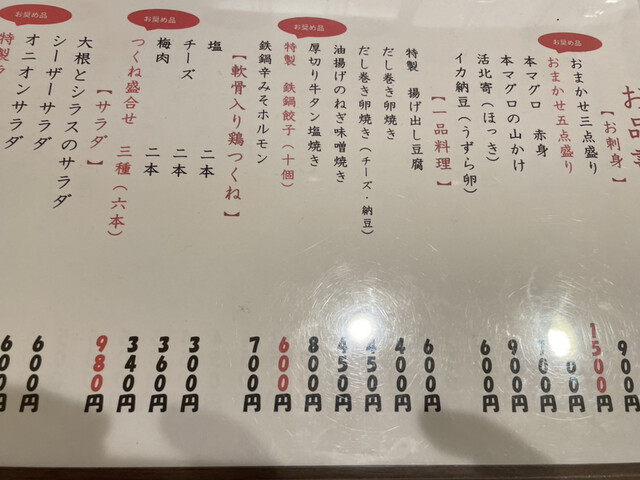 お品書
【お刺身】
おまかせ三点盛り 900円
おまかせ五点盛り 1500円
本マグロ 赤身
本マグロの山かけ
活北寄(ほっき) 900円
イカ納豆(うずら卵) 600円
【一品料理】
特製 揚げ出し豆腐 600円
だし巻き卵焼き 400円
だし巻き卵焼き(チーズ・納豆) 450円
油揚げのねぎ味噌焼き 450円
厚切り牛タン塩焼き 800円
お奨め品
特製 鉄鍋餃子(十個) 600円
鉄鍋辛みそホルモン 700円
【軟骨入り鶏つくね】
塩 二本 300円
チーズ 二本 360円
梅肉 二本 340円
お奨め品
つくね盛合せ 三種(六本) 980円
【サラダ】
大根とシラスのサラダ 600円
シーザーサラダ 600円
オニオンサラダ
お奨め品
特製
お奨め品